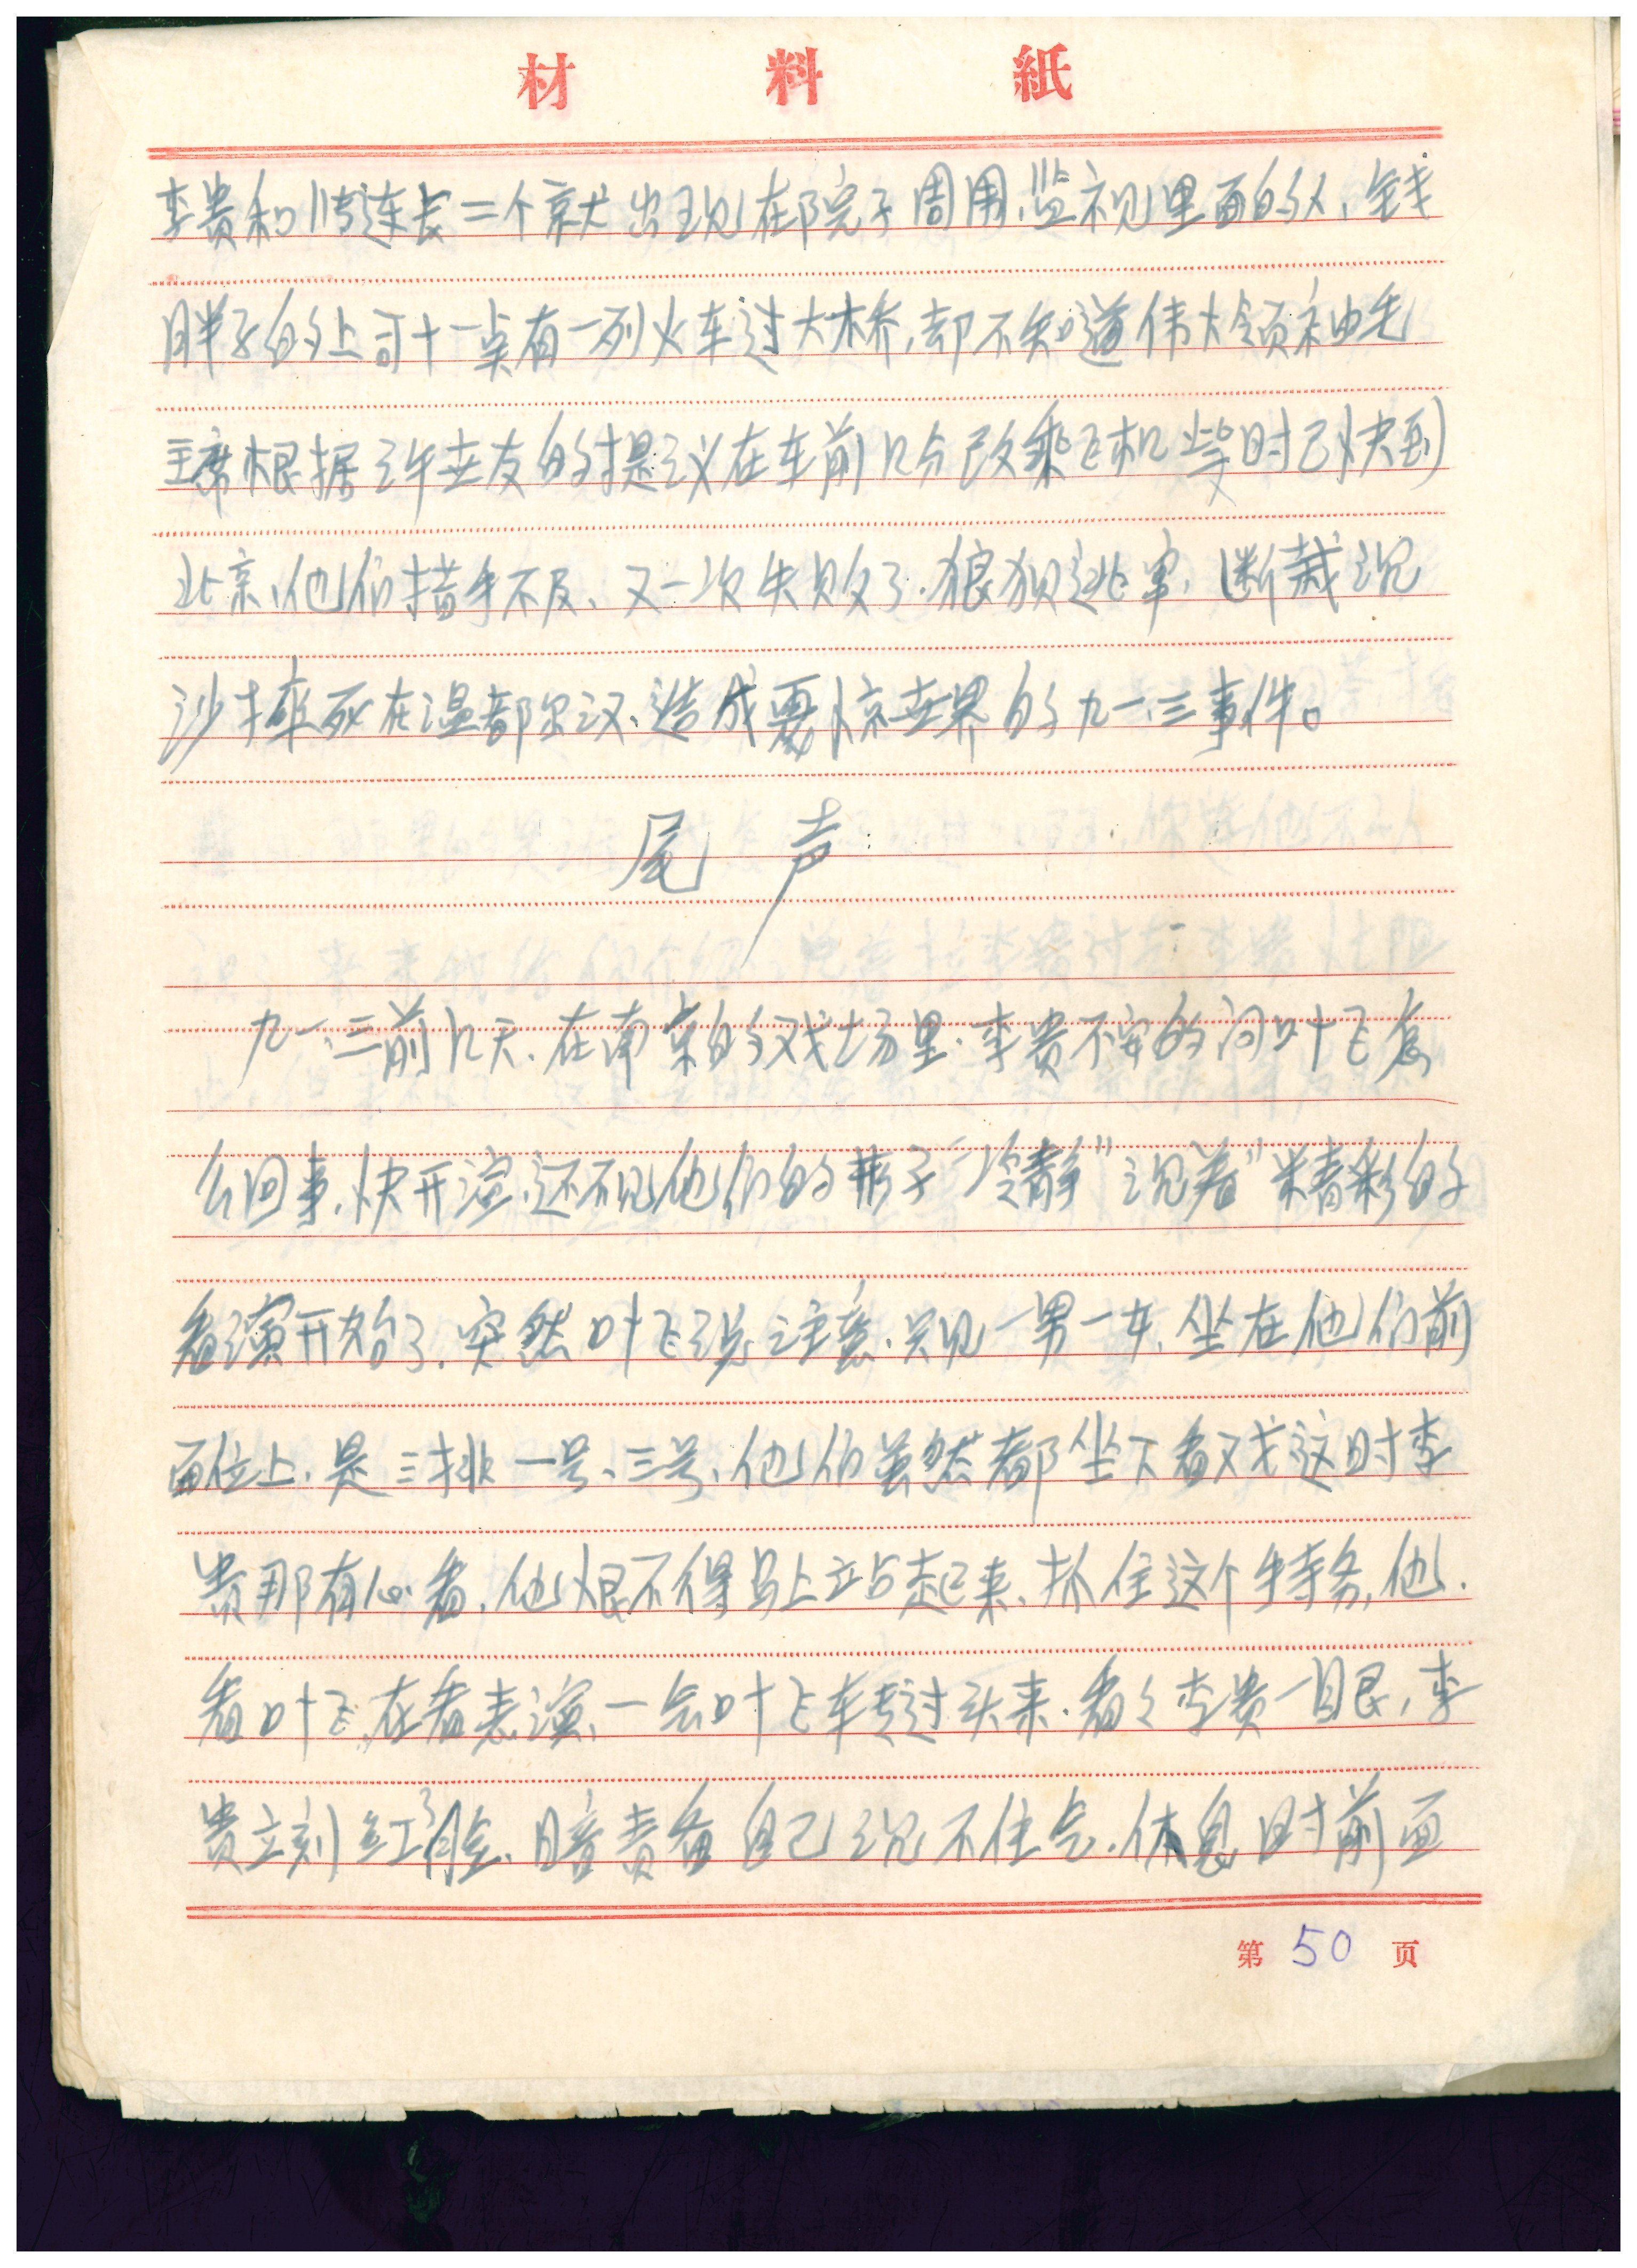 材料紙
李贵和 连长二个就出现在院子周围、监视里面的人、钱
胖子的上司十一点有一列火车过大桥,却不知道伟大领袖毛
主席根据许世友的提议在车前几分改乘飞机 时已快到
北京,他们措手不及、又一次失败了.狼狈逃窜,断戟沉
沙摔死在温都尔汉、造成震惊世界的九一、三事件。
尾声:
九一、三前几天.在南京的戏场里.李贵不安的问叶飞怎
么回事.快开演,还不见他们的影子"冷静"沉着"精彩的
看演开始了.突然叶飞说注意.只见一男一女.坐在他们前
面位上.是三排一号、三号、他们虽然都坐下看戏这时李
贵那有心看,他恨不得马上站起来、抓住这个特务,他.
看叶飞在看表演、一会叶飞转过头来.看々李贵一眼,李
贵立刻红了脸、暗责备自己沉不住气.休息时前面
第50页